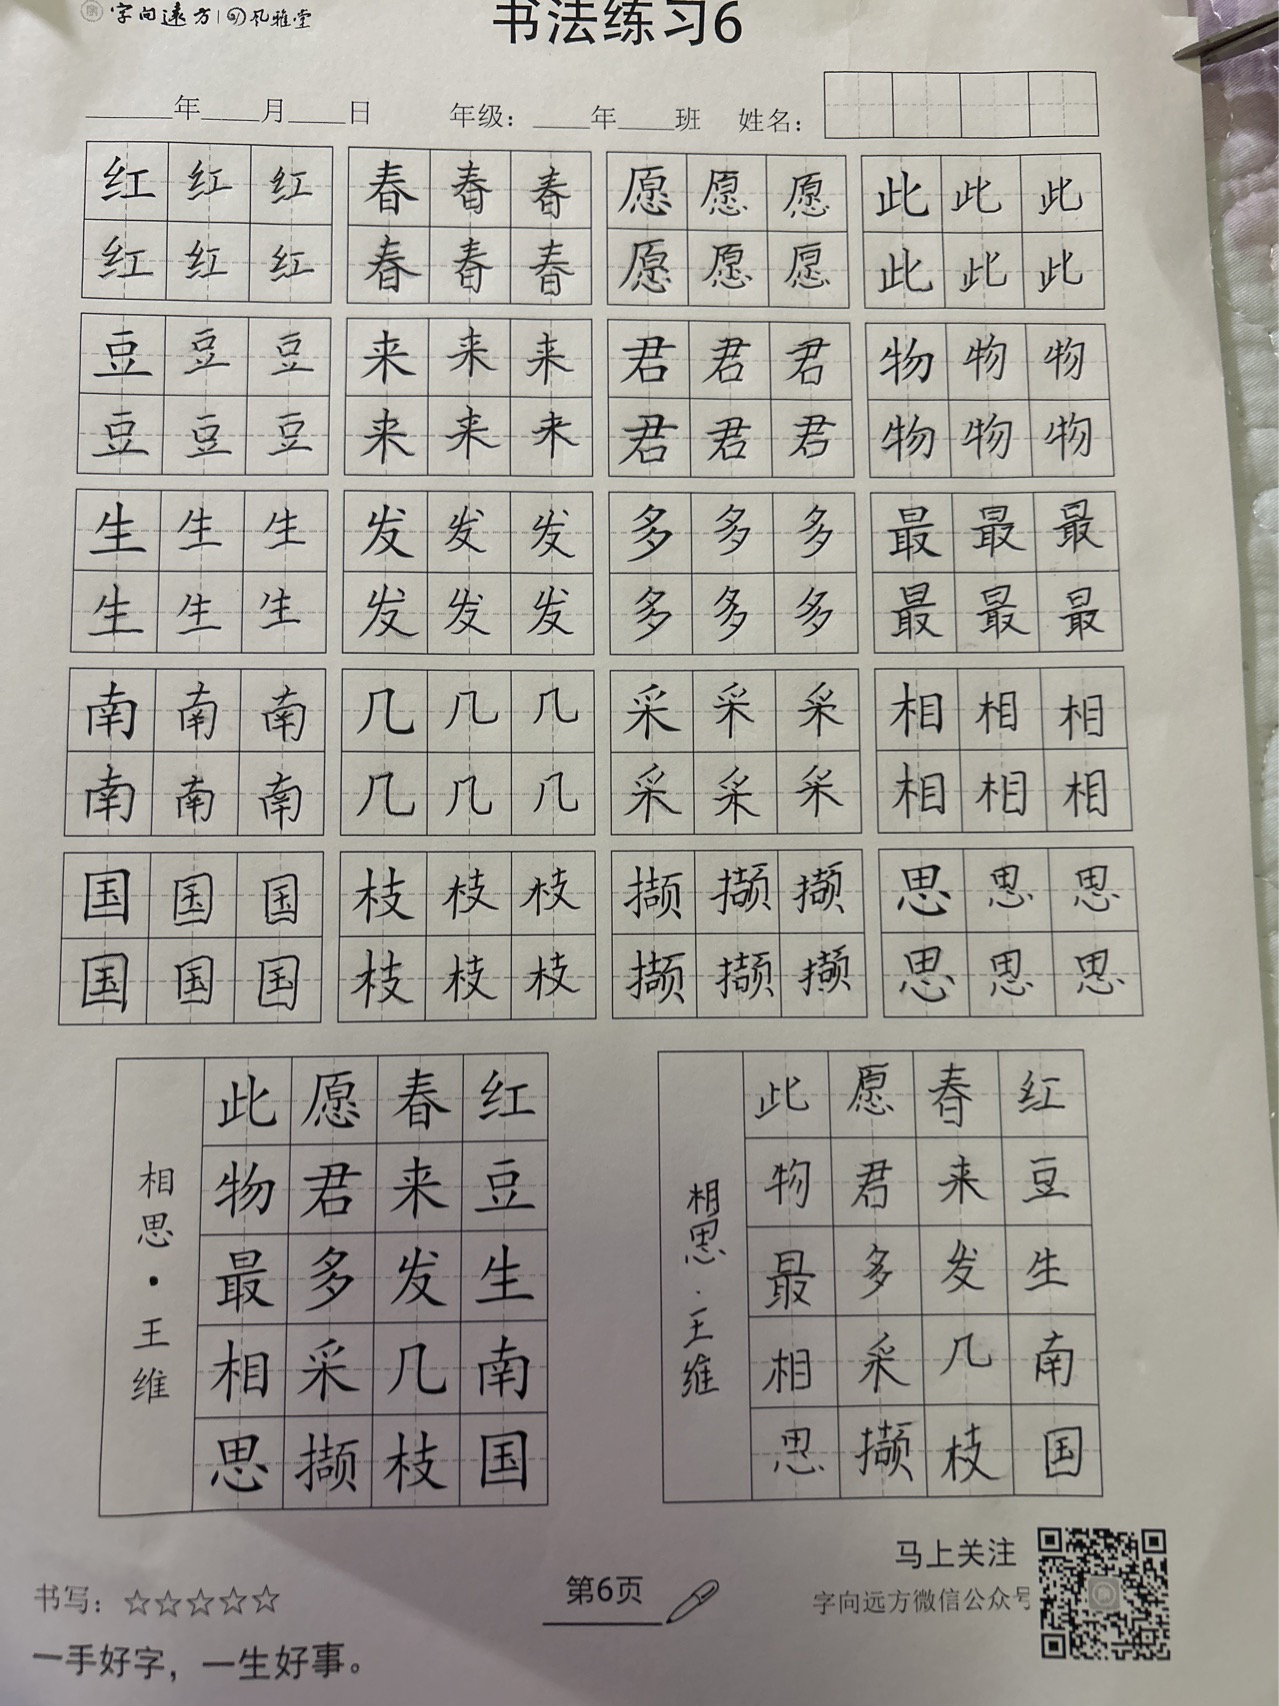 字向远方 | 风雅堂
书法练习6
____年____月____日 年级：____年____班 姓名：
红 红 红 春 春 春 愿 愿 愿 此 此 此
红 红 红 春 春 春 愿 愿 愿 此 此 此
豆 豆 豆 来 来 来 君 君 君 物 物 物
豆 豆 豆 来 来 来 君 君 君 物 物 物
生 生 生 发 发 发 多 多 多 最 最 最
生 生 生 发 发 发 多 多 多 最 最 最
南 南 南 几 几 几 采 采 采 相 相 相
南 南 南 几 几 几 采 采 采 相 相 相
国 国 国 枝 枝 枝 撷 撷 撷 思 思 思
国 国 国 枝 枝 枝 撷 撷 撷 思 思 思
红豆生南国
春来发几枝
愿君多采撷
此物最相思
相思·王维
红豆生南国
春来发几枝
愿君多采撷
此物最相思
相思·王维
马上关注
字向远方微信公众号
书写：☆☆☆☆☆
第6页
一手好字，一生好事。